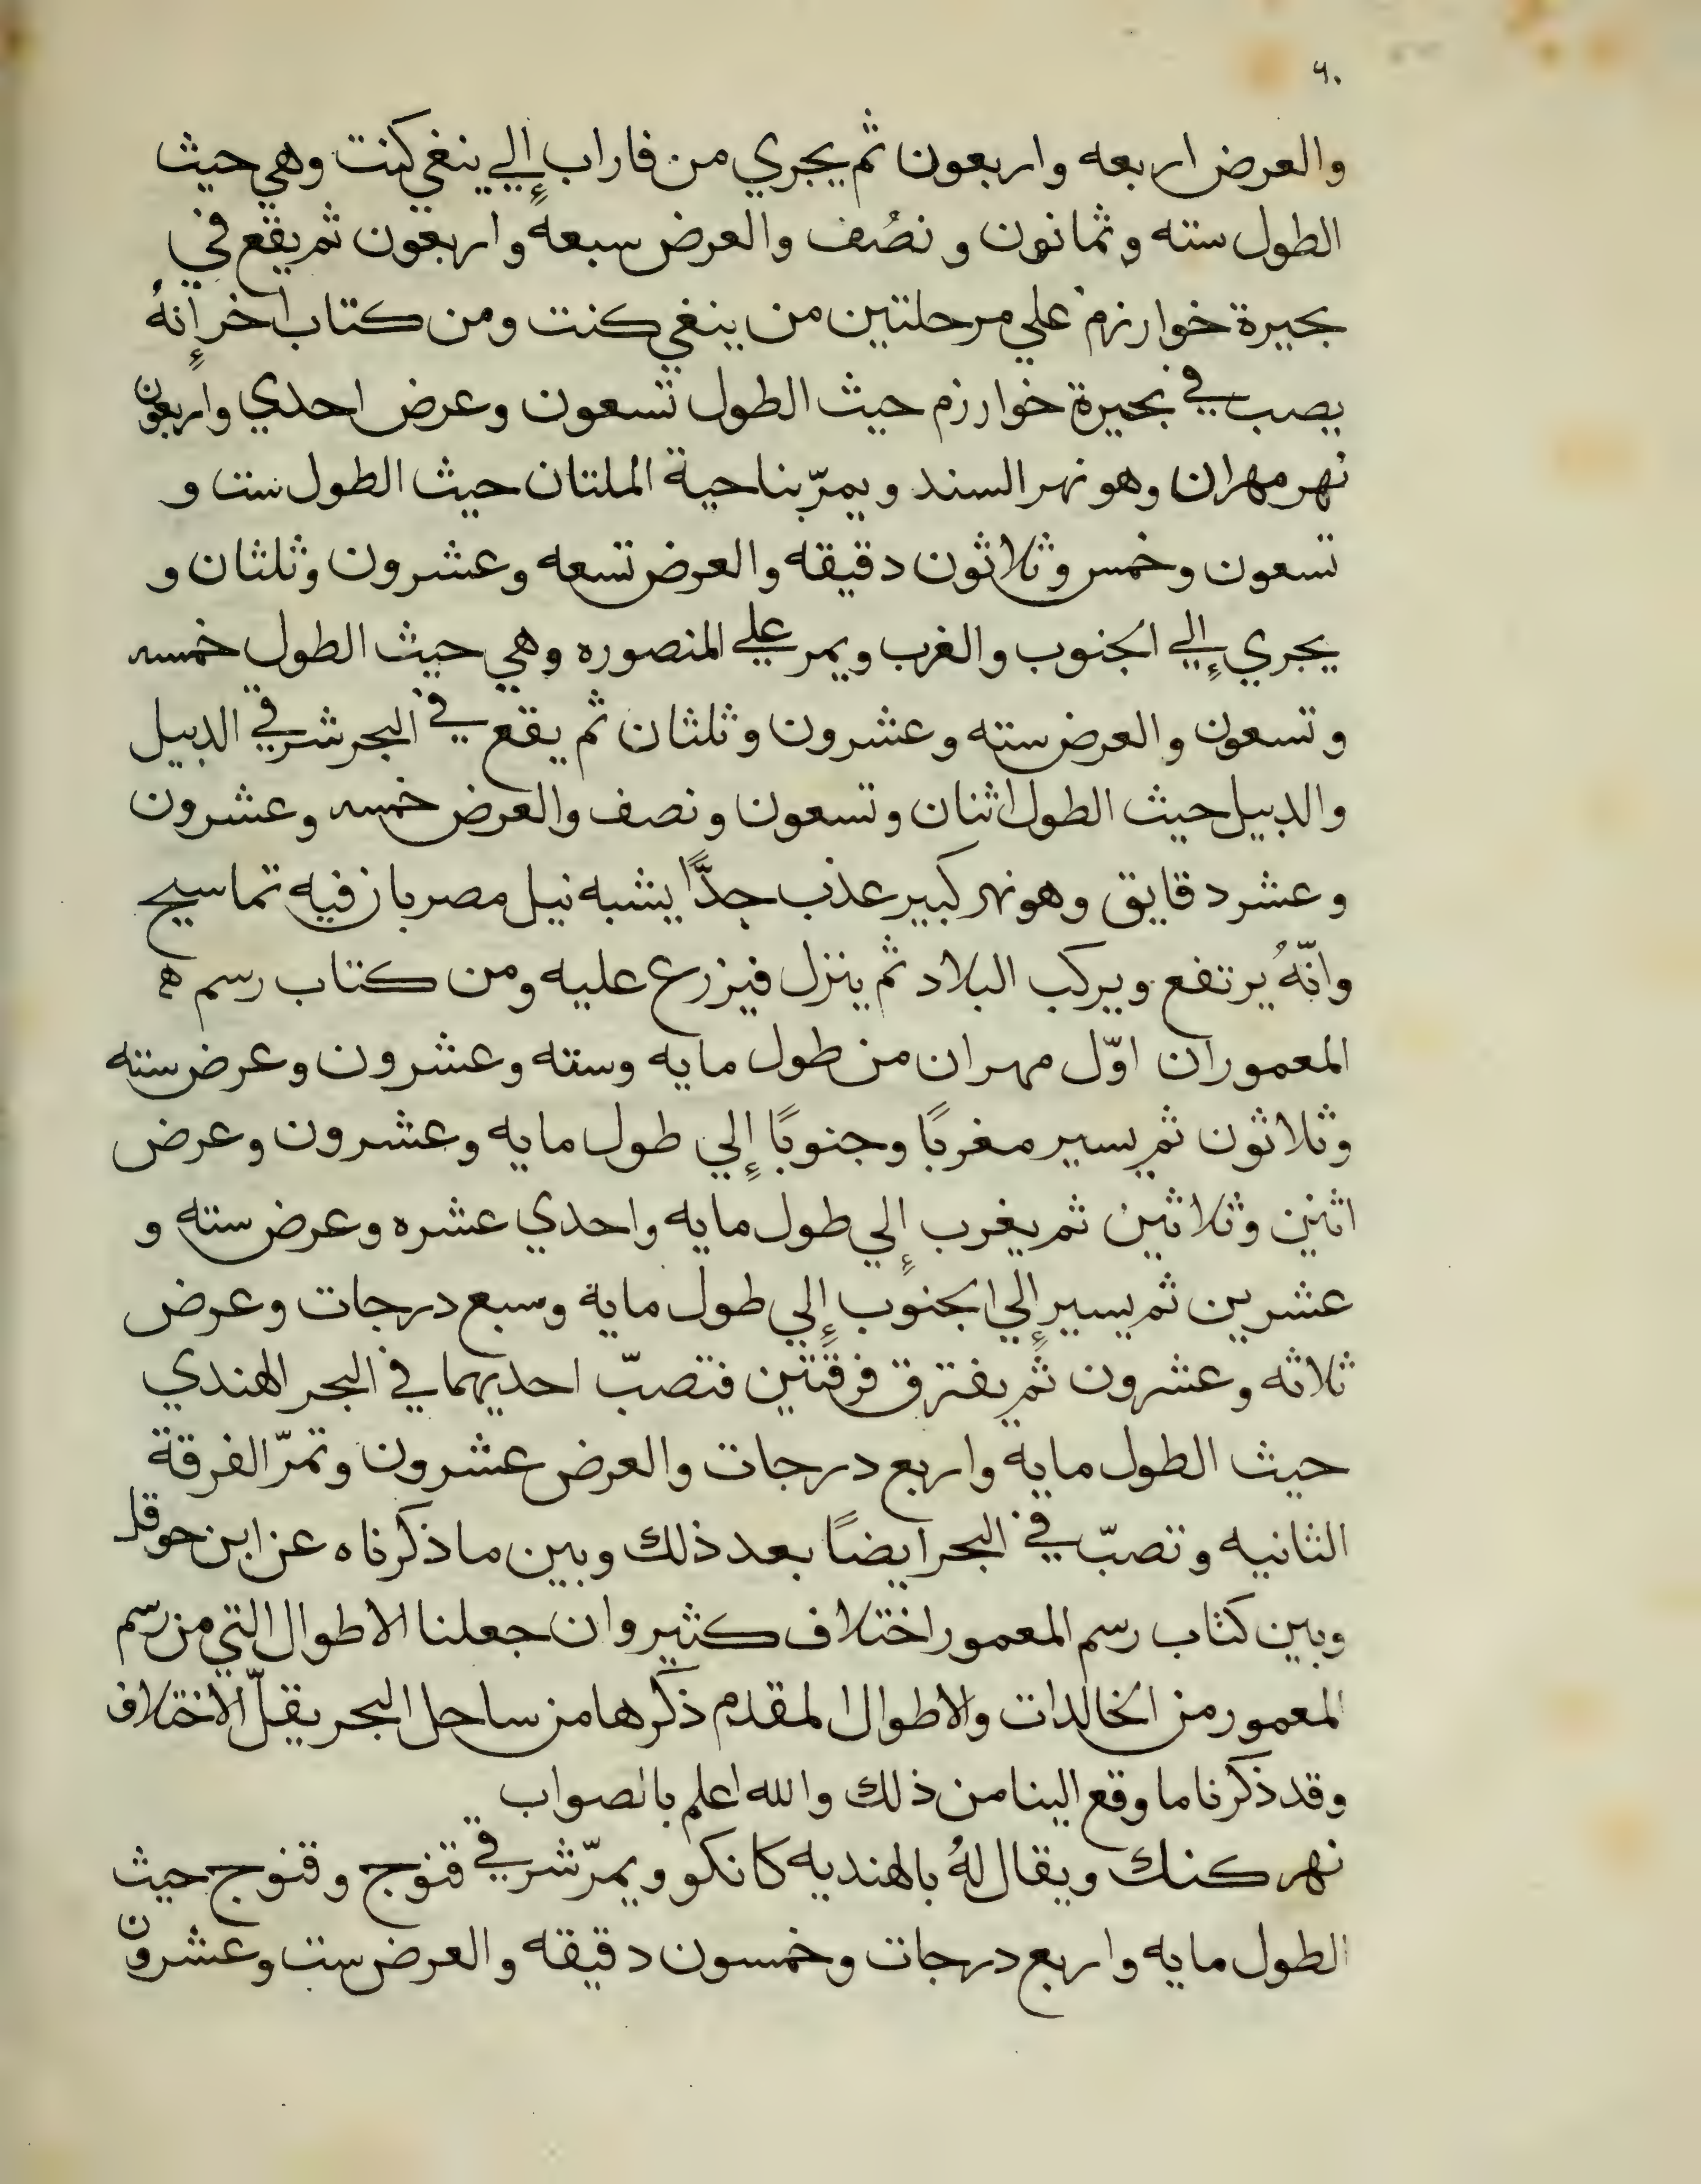 ٦٠
والعرض اربعه واربعون ثم يجري من فاراب إلي ينغي كنت وهي حيث
الطول سته وثمانون ونصُف والعرض سبعةً واربعون ثم يقع في
بحيرة خوارزم علي مرحلتين من ينغي كنت ومن كتاب اخر إنهُ
يصب في بحيرة خوارزم حيث الطول تسعون وعرض احدي واربعون
نهر مهران وهو نهر السند ويمرّ بناحية الملتان حيث الطول ست و
تسعون وخمس وثلاثون دقيقه والعرض تسعه وعشرون وثلثان و
يجري إلي الجنوب والغرب ويمر علي المنصوره وهي حيث الطول خمسه
وتسعون والعرض سته وعشرون وثلثان ثم يقع في البحر شرقي الدبيل
والدبيل حيث الطول اثنان وتسعون ونصف والعرض خمسه وعشرون
وعشر دقايق وهو نهر كبير عذب جدًّا يشبه نيل مصر بان فيه تماسيح
وانّهُ يرتفع ويركب البلاد ثم ينزل فيزرع عليه ومن كتاب رسم ه
المعمور ان اوّل مهران من طول مايه وسته وعشرون وعرض سته
وثلاثون ثم يسير مغربًا وجنوبًا إلي طول مايه وعشرون وعرض
اثنين وثلاثين ثم يغرب إلي طول مايه واحدي عشره وعرض سته و
عشرين ثم يسير إلي الجنوب إلي طول ماية وسبع درجات وعرض
ثلاثه وعشرون ثم يفترق فرقتين فتصبّ احديهما في البحر الهندي
حيث الطول ماية واربع درجات والعرض عشرون وتمرّ الفرقة
الثانيه وتصبّ في البحر ايضًا بعد ذلك وبين ما ذكرناه عن ابن حوقل
وبين كتاب رسم المعمور اختلاف كثير وان جعلنا الاطوال التي من رسم
المعمور من الخالدات والاطوال المقدم ذكرها من ساحل البحر يقلّ الاختلاف
وقد ذكرنا ما وقع الينا من ذلك والله اعلم بالصواب
نهر كنك ويقال لهُ بالهنديه كانكو ويمرّ شرقي قنوج وقنوج حيث
الطول مايه واربع درجات وخمسون دقيقه والعرض ست وعشرون